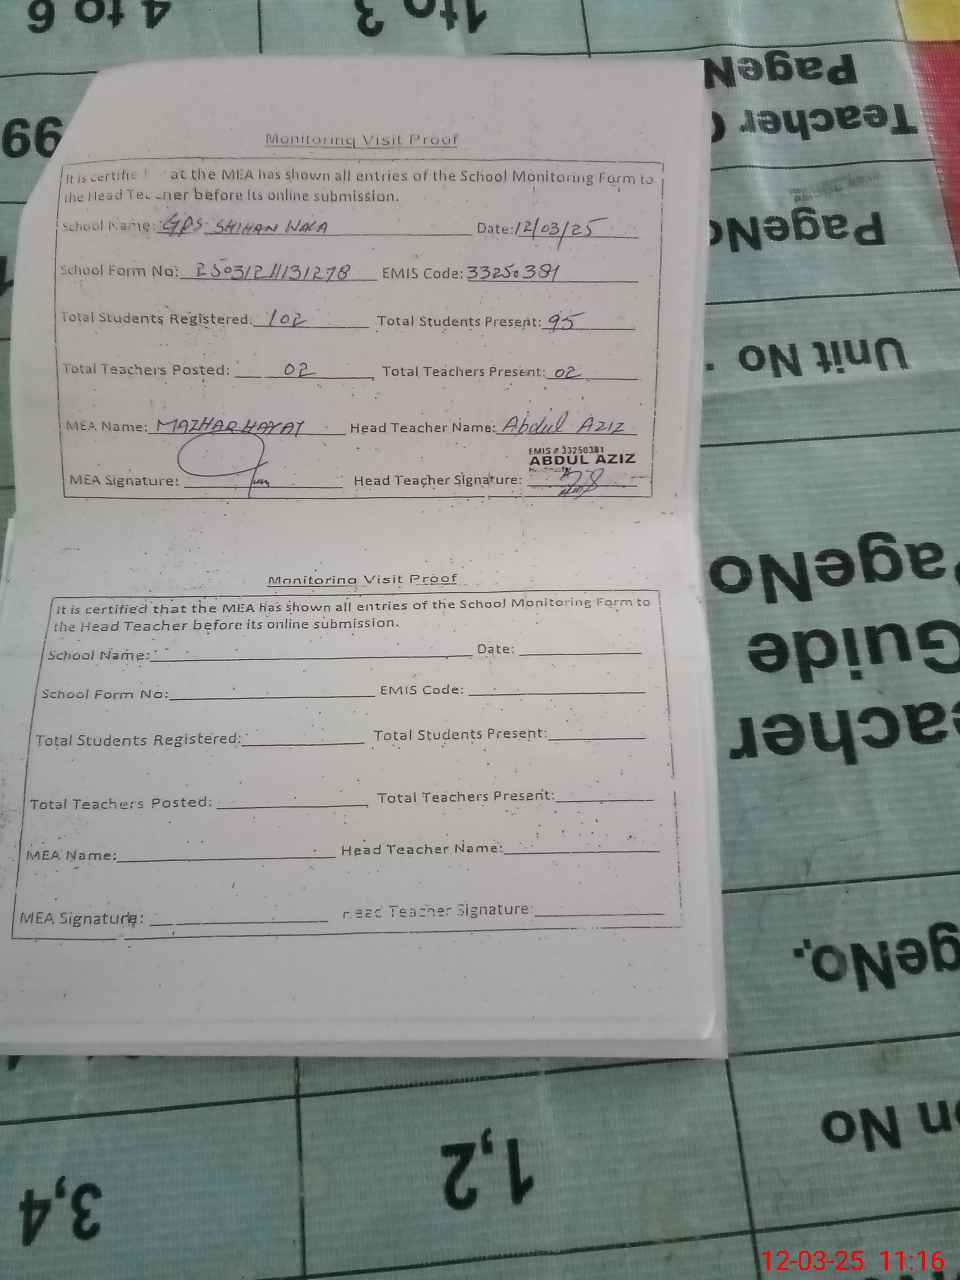 4 to 6
1to 3
PageN
Teacher
99
PageNo
Unit No
Monitoring Visit Proof
It is certifie at the MEA has shown all entries of the School Monitoring Form to
the Head Teacher before its online submission.
School Name: GPS SHIHAN WALA Date: 12/03/25
School Form No: 25031211131278 EMIS Code: 33250381
Total Students Registered: 102 Total Students Present: 95
Total Teachers Posted: 02 Total Teachers Present: 02
MEA Name: MAZHAR HAYAT Head Teacher Name: Abdul AZIZ
EMIS # 33250381
ABDUL AZIZ
MEA Signature: Head Teacher Signature:
Monitoring Visit Proof
It is certified that the MEA has shown all entries of the School Monitoring Form to
the Head Teacher before its online submission.
School Name: Date:
School Form No: EMIS Code:
Total Students Registered: Total Students Present:
Total Teachers Posted: Total Teachers Present:
MEA Name: Head Teacher Name:
MEA Signature: Head Teacher Signature:
PageNo
Guide
eacher
geNo.
on No
1,2
3,4
12-03-25 11:16